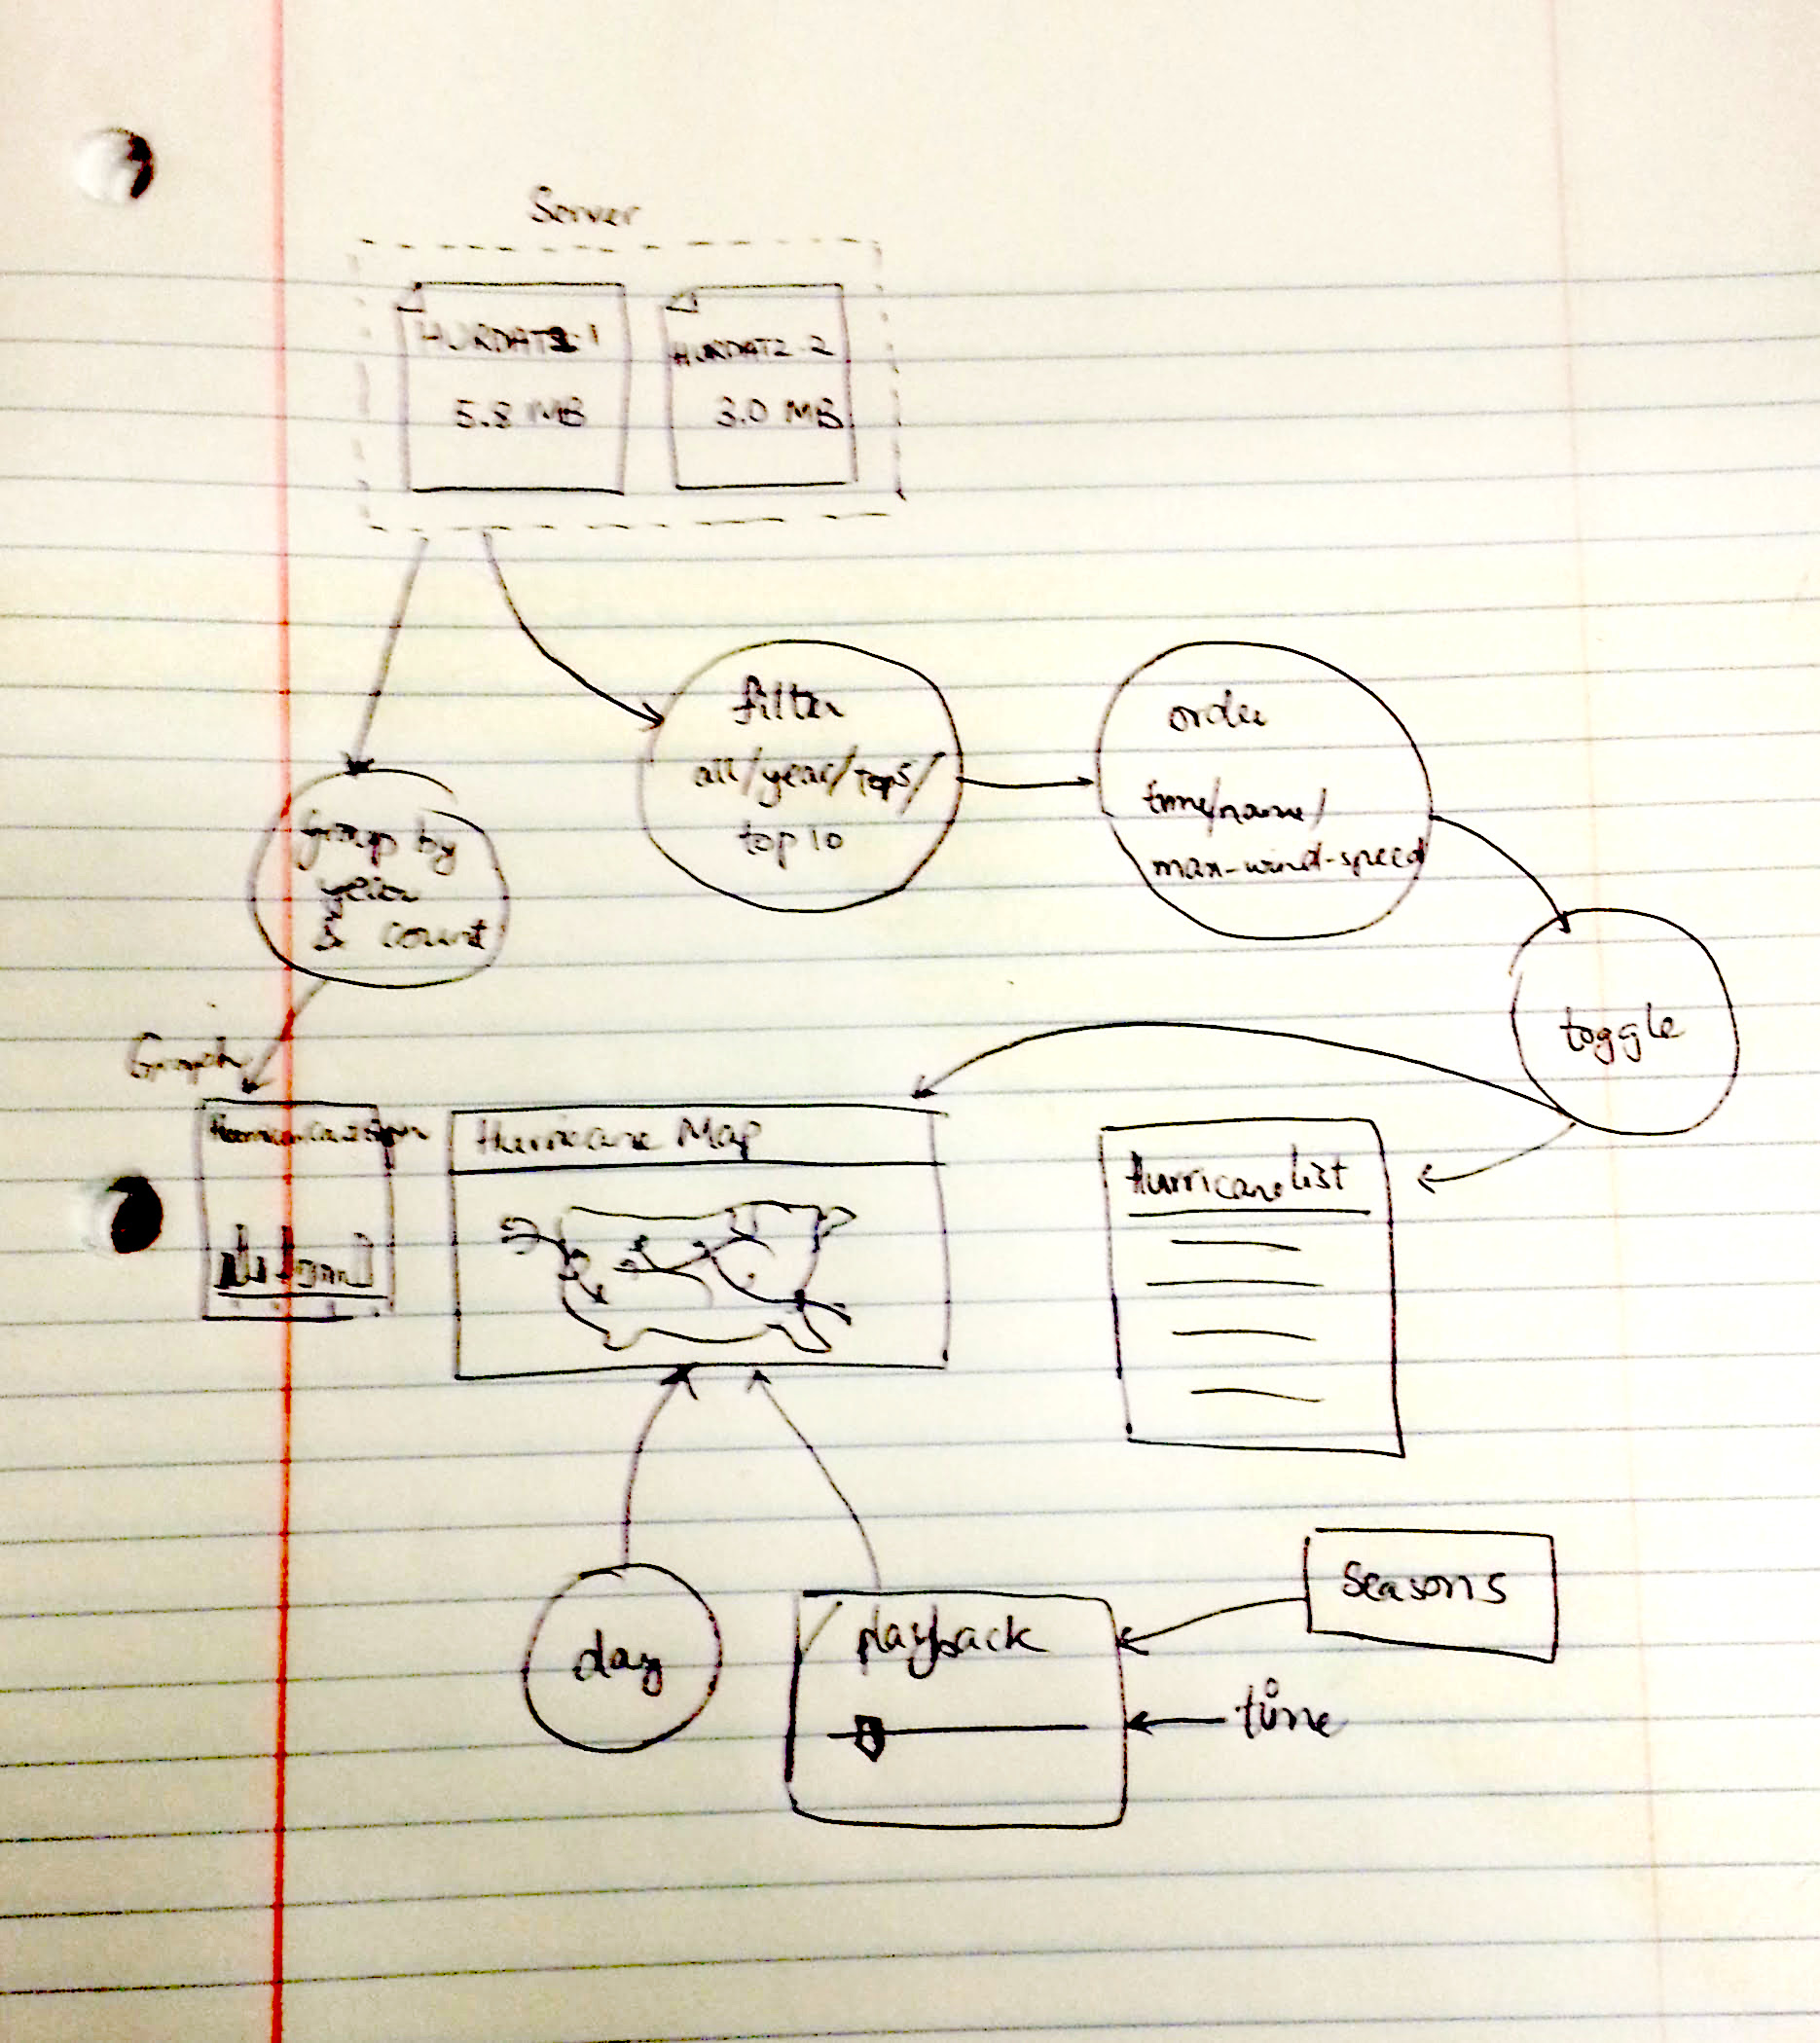 Server
HURDAT2 1
HURDAT2 2
5.8 MB
3.0 MB
filter
all/year/top5/
top 10
order
time/name/
max-wind-speed
group by
year
& count
toggle
Graph
Hurricane Map
Hurricane list
day
playback
seasons
time